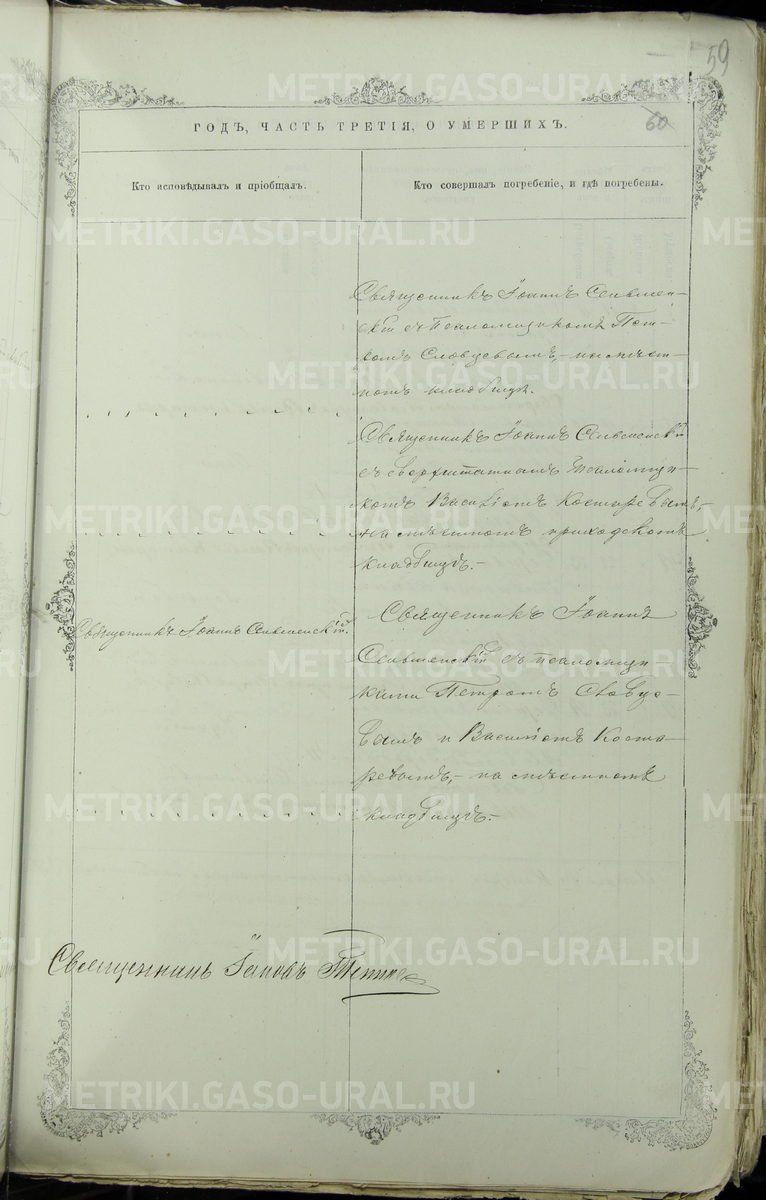 59
60
ГОДЪ, ЧАСТЬ ТРЕТІЯ, О УМЕРШИХЪ.
Кто исповѣдывалъ и пріобщалъ.
Кто совершалъ погребеніе, и гдѣ погребены.
Священникъ Іоаннъ Сельмен-
скій съ псаломщикомъ Пет-
ромъ Словцовымъ,- на мѣст-
номъ кладбищѣ.
Священникъ Іоаннъ Сельменскій
съ сверхштатнымъ псаломщи-
комъ Василіемъ Костаревымъ,-
на мѣстномъ приходскомъ
кладбищѣ.-
Священникъ Іоаннъ Сельменскій.
Священникъ Іоаннъ
Сельменскій съ псаломщи-
ками Петромъ Словцо-
вымъ и Василіемъ Коста-
ревымъ,- на мѣстномъ
кладбищѣ.-
Священникъ Іаковъ
METRIKI.GASO-URAL.RU